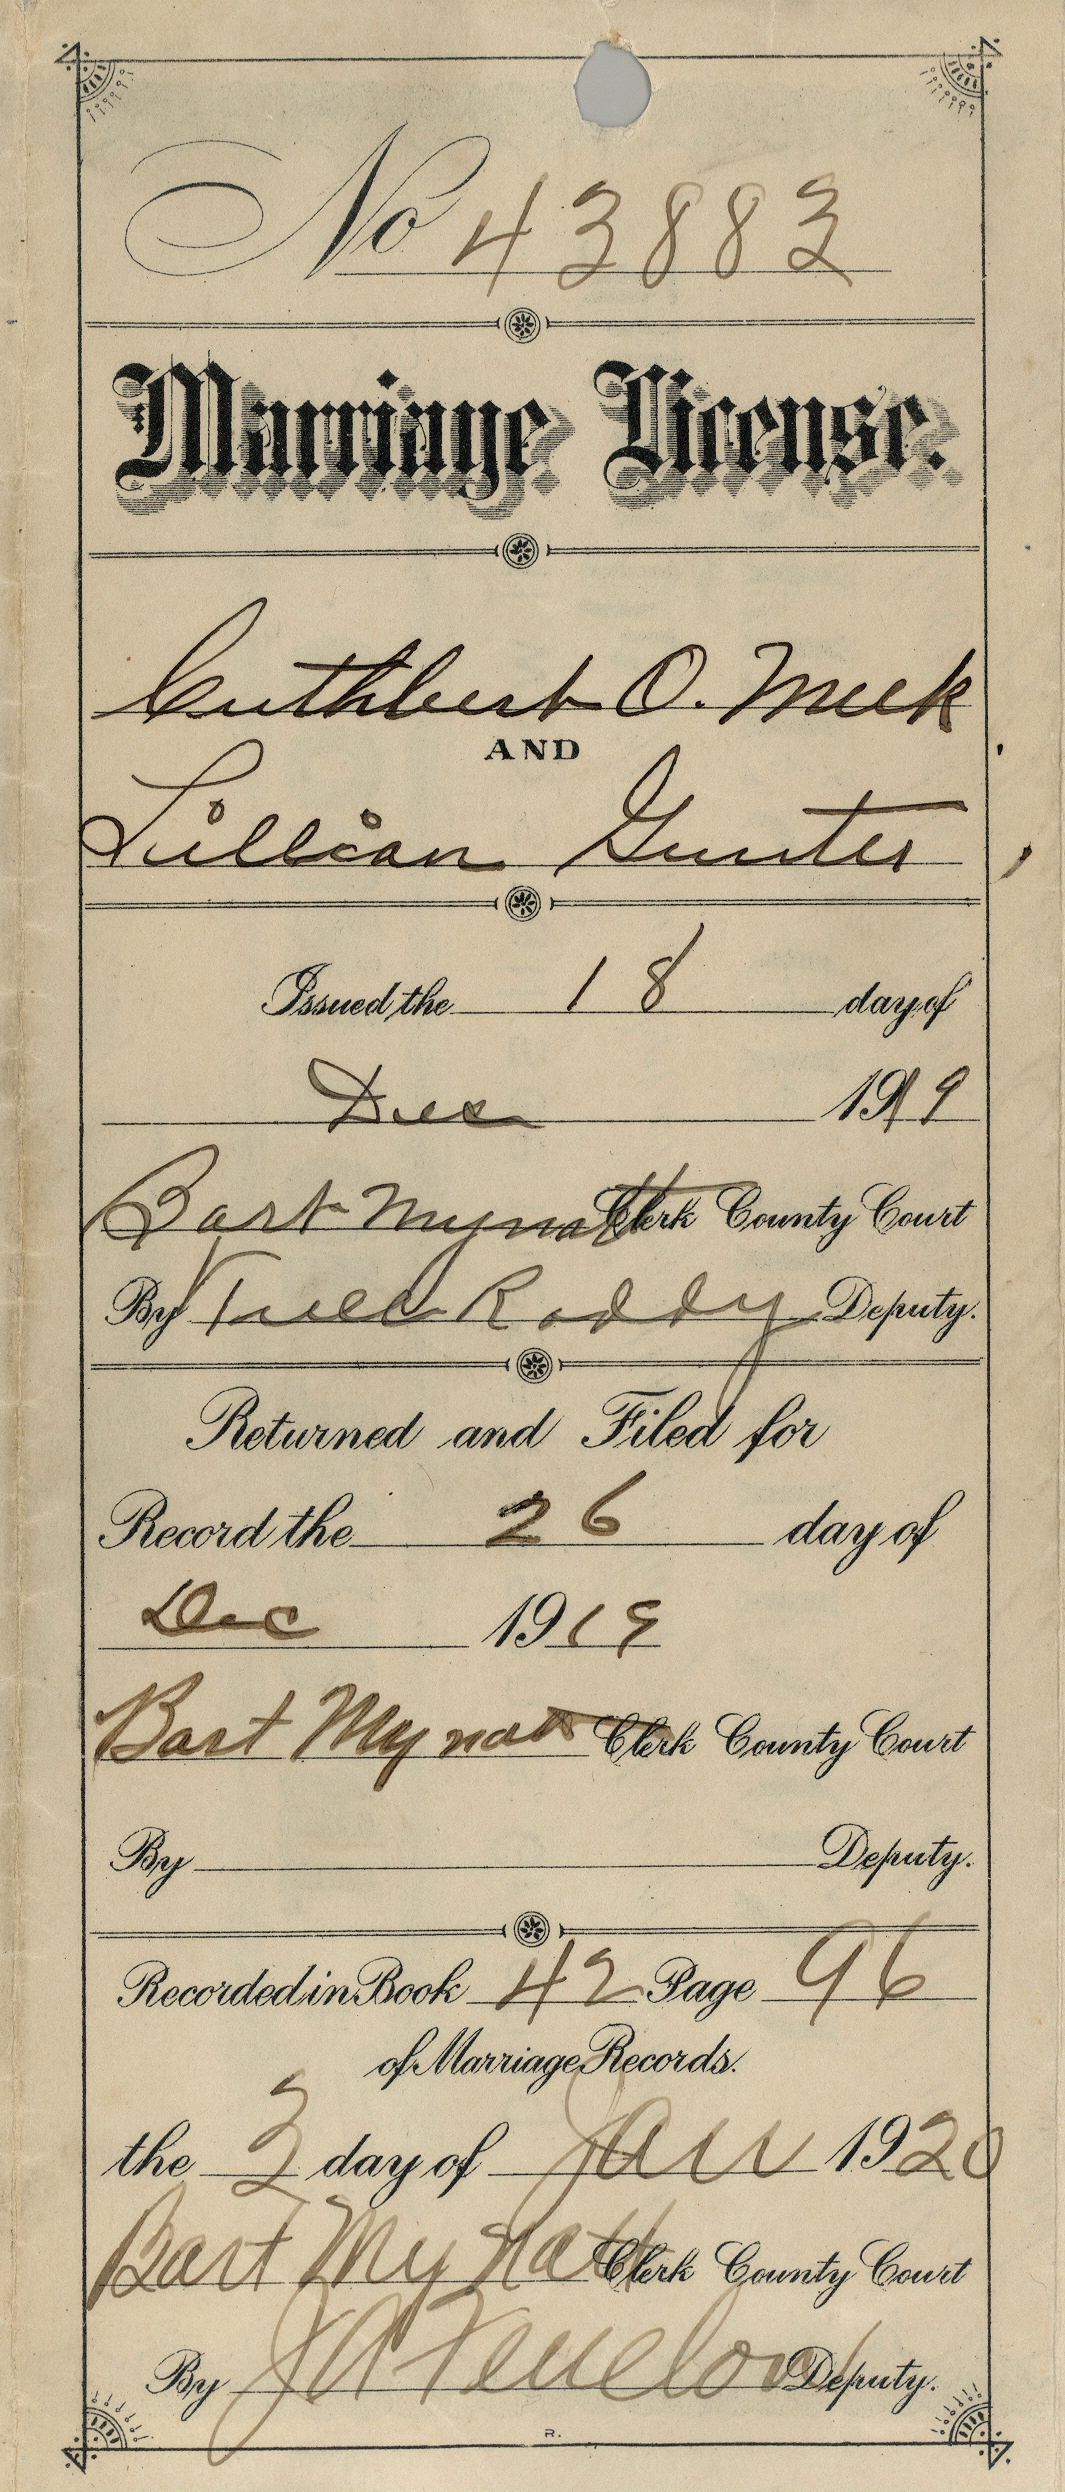 No 43883
Marriage License.
Cuthbert O. Meek
AND
Lillian Gunter
Issued the 18 day of
Dec 1919
Bart Mynatt Clerk County Court
By Roddy Deputy.
Returned and Filed for
Record the 26 day of
Dec 1919
Bart Mynatt Clerk County Court
By Deputy.
Recorded in Book 42 Page 96
of Marriage Records.
the 3 day of Jan 1920
Bart Mynatt Clerk County Court
By J A Fenelon Deputy.
R.